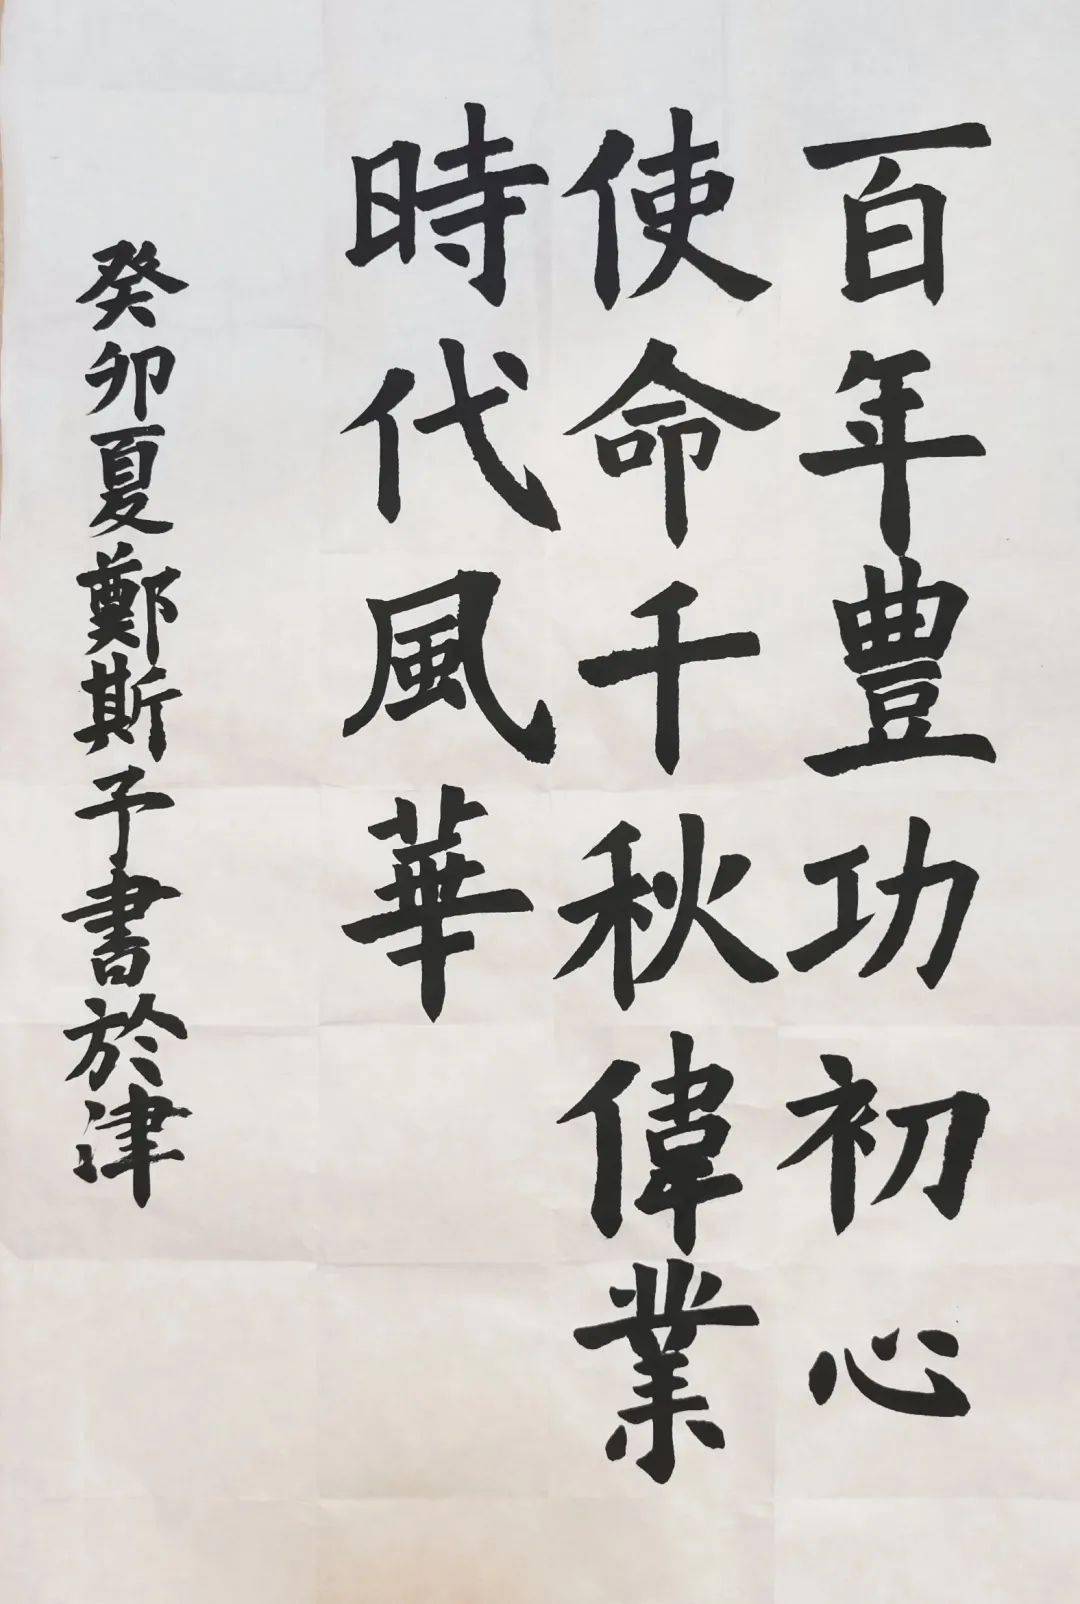 百年豊功初心
使命千秋偉業
時代風華
癸卯夏鄭斯予書於津